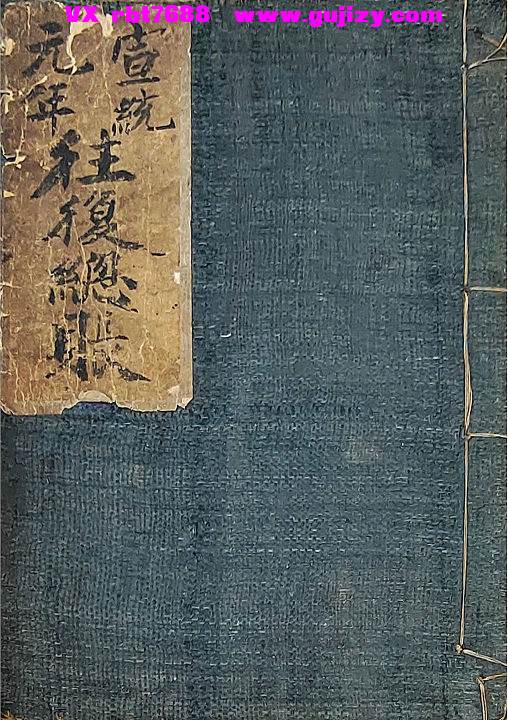 VX rbt7688 www.gujizy.com
宣統
元年
往復總賬